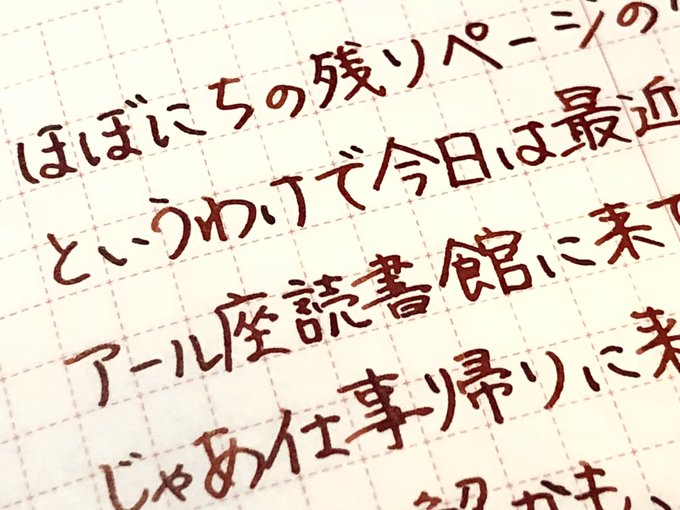 ほぼにちの残りページの
というわけで今日は最近
アール座読書館に来て
じゃあ仕事り帰りに来
かも、